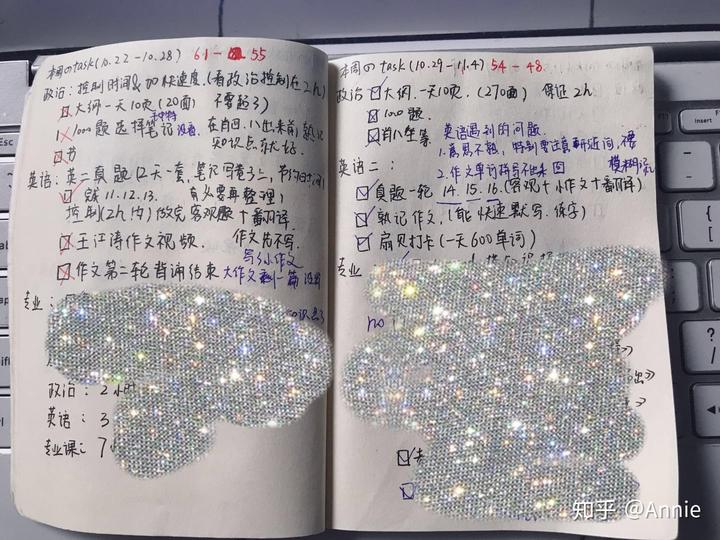 本周の task(10.22-10.28) 61-55
政治:控制时间&加快速度.(看政治控制在2h)
大纲一天10页(20面) 不要超了
1000题选择笔记 没看. 在肖四、八出来前熟记
知识点
书
英语:英二真题(2天一套,笔记写卷子上,节约时间)
完成11.12.13. 有必要再整理)
控制(2h内)做完客观题+翻译.
王江涛作文视频. 作文先不写.
写3小作文
作文第二轮背诵结束 大作文剩一篇没背
专业:
知识点
政治:2小时
英语:3
专业课:7
本周の task(10.29-11.4) 54-48
政治 大纲.一天10页.(270面) 保证2h
1000题.
肖八坐等
英语遇到的问题
1.意思不熟,特别要注意
2.作文单词拼写不出来
模糊
英语二:
真题一轮 14. 15. 16.(客观+小作文+翻译)
熟记作文.(能快速默写.练字)
扇贝打卡(一天600单词)
专业
no
知乎 @Annie